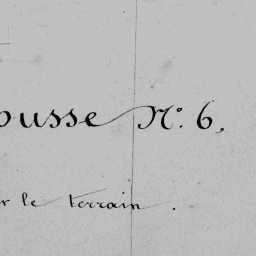 ousse N.º 6.
r le terrain.